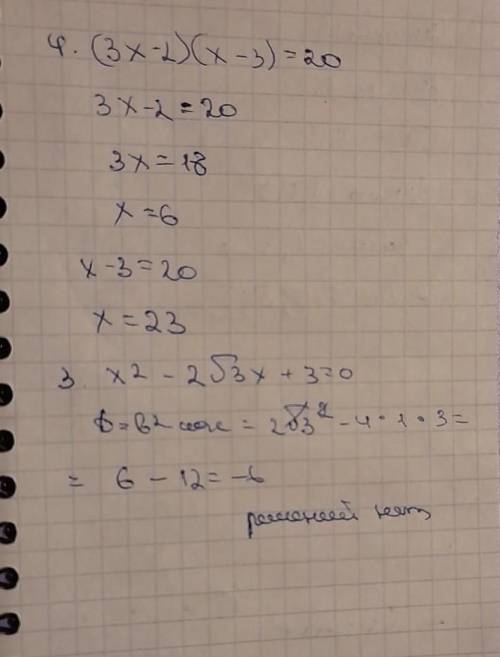 4. (3x-2)(x-3)=20
3x-2=20
3x=18
x=6
x-3=20
x=23
3. x2 - 2√3x + 3=0
D=b2-4ac = 2√3² - 4·1·3=
= 6 - 12 = -6
решений нет